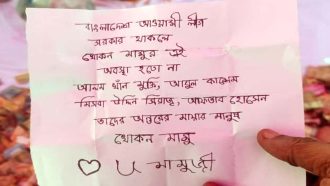 বাংলাদেশ আওয়ামী লীগ
সরকার থাকলে
খোকন মামুর এই
অবস্থা হতো না
আলম খান মুক্তি, আবুল কাশেম
মিসবা উদ্দিন সিরাজ, আফতাব হোসেন
তাদের অন্তরের মামার মানুষ
খোকন মামু
♡ U মামুজী